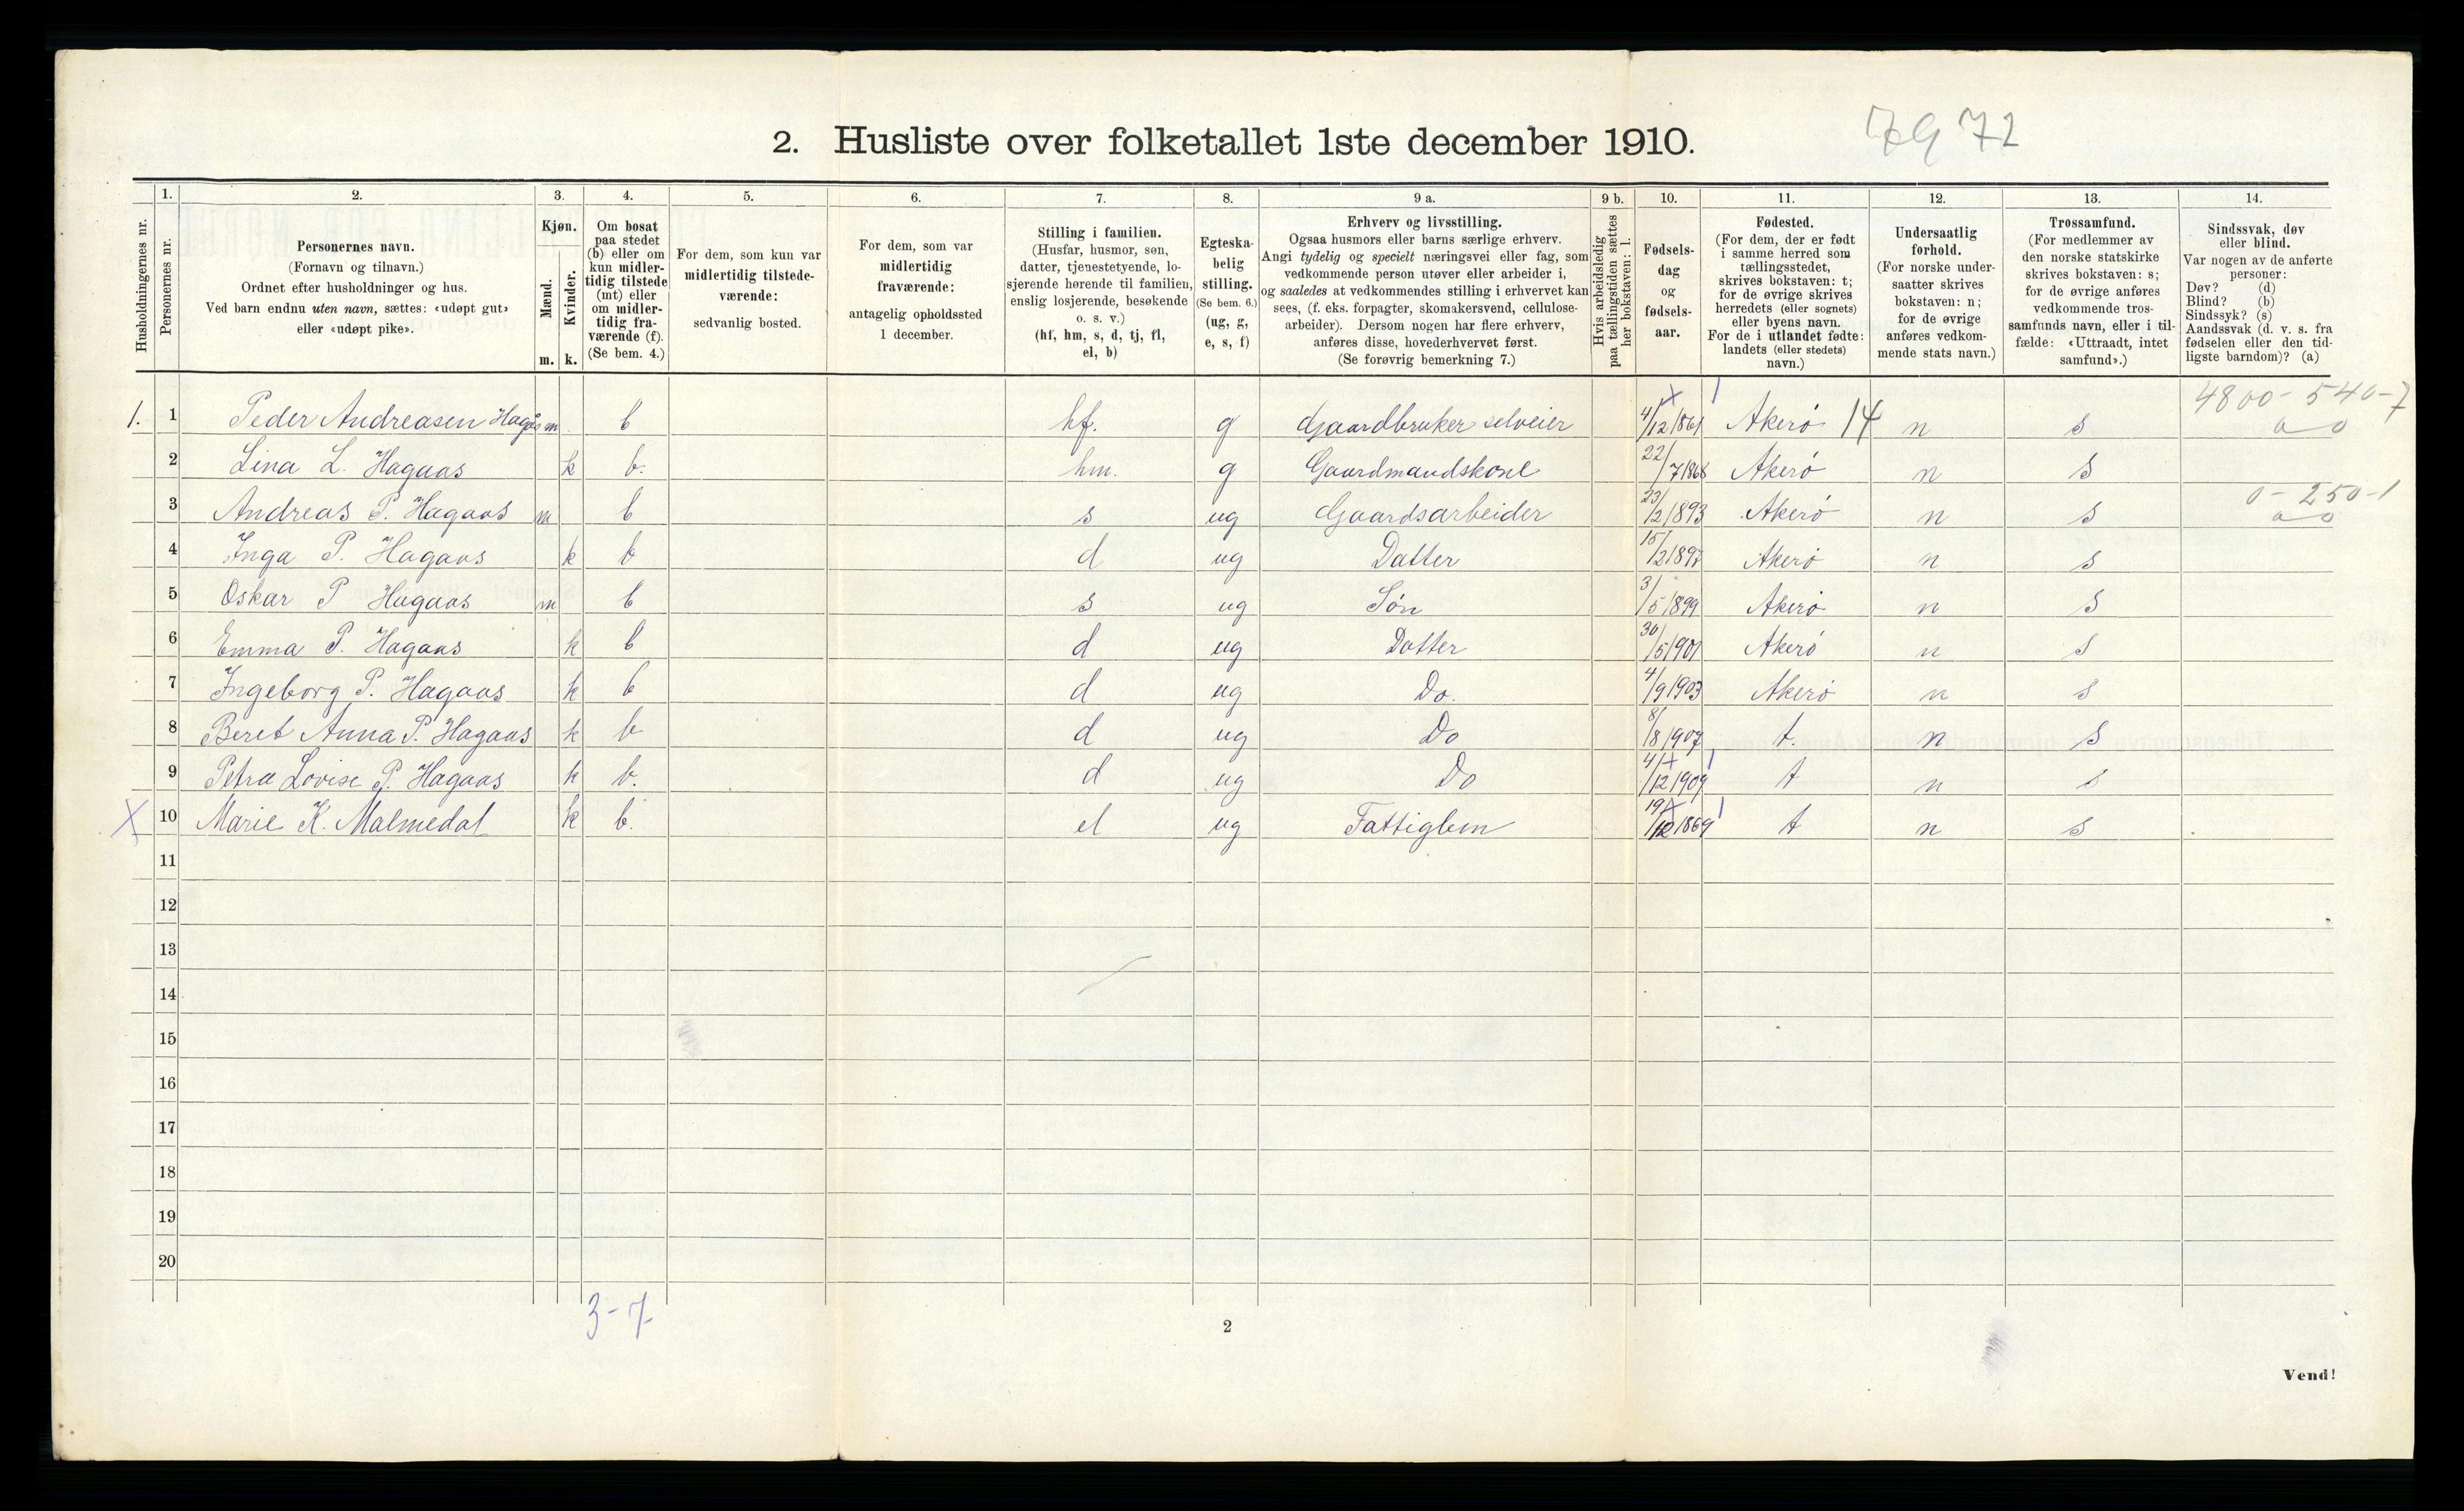 7972
2. Husliste over folketallet 1ste december 1910.
Husholdningernes nr.
1.
Personernes nr.
2.
Personernes navn.
(Fornavn og tilnavn.)
Ordnet efter husholdninger og hus.
Ved barn endnu uten navn, sættes: «udøpt gut»
eller «udøpt pike».
3.
Kjøn.
Mænd.
Kvinder.
m. k.
4.
Om bosat
paa stedet
(b) eller om
kun midler-
tidig tilstede
(mt) eller
om midler-
tidig fra-
værende (f).
(Se bem. 4.)
5.
For dem, som kun var
midlertidig tilstede-
værende:
sedvanlig bosted.
6.
For dem, som var
midlertidig
fraværende:
antagelig opholdssted
1 december.
7.
Stilling i familien.
(Husfar, husmor, søn,
datter, tjenestetyende, lo-
sjerende hørende til familien,
enslig losjerende, besøkende
o. s. v.)
(hf, hm, s, d, tj, fl,
el, b)
8.
Egteska-
belig
stilling.
(Se bem. 6.)
(ug, g,
e, s, f)
9 a.
Erhverv og livsstilling.
Ogsaa husmors eller barns særlige erhverv.
Angi tydelig og specielt næringsvei eller fag, som
vedkommende person utøver eller arbeider i,
og saaledes at vedkommendes stilling i erhvervet kan
sees, (f. eks. forpagter, skomakersvend, cellulose-
arbeider). Dersom nogen har flere erhverv,
anføres disse, hovederhvervet først.
(Se forøvrig bemerkning 7.)
9 b.
Hvis arbeidsledig
paa tællingstiden sættes
her bokstaven: l.
10.
Fødsels-
dag
og
fødsels-
aar.
11.
Fødested.
(For dem, der er født
i samme herred som
tællingsstedet,
skrives bokstaven: t;
for de øvrige skrives
herredets (eller sognets)
eller byens navn.
For de i utlandet fødte:
landets (eller stedets)
navn.)
12.
Undersaatlig
forhold.
(For norske under-
saatter skrives
bokstaven: n;
for de øvrige
anføres vedkom-
mende stats navn.)
13.
Trossamfund.
(For medlemmer av
den norske statskirke
skrives bokstaven: s;
for de øvrige anføres
vedkommende tros-
samfunds navn, eller i til-
fælde: «Uttraadt, intet
samfund».)
14.
Sindssvak, døv
eller blind.
Var nogen av de anførte
personer:
Døv? (d)
Blind? (b)
Sindssyk? (s)
Aandssvak (d. v. s. fra
fødselen eller den tid-
ligste barndom)? (a)
4800-540-7
1. 1 Peder Andreasen Hagås m b hf. g Gaardbruker selveier 4/12 1861 Akerø 14 n s
2 Lina L. Hagaas k b. hm. g Gaardmandskone 22/7 1868 Akerø n s
0-250-1
3 Andreas P. Hagaas m b s ug Gaardsarbeider 23/2 1893 Akerø n s
4 Inga P. Hagaas k b d ug Datter 15/2 1897 Akerø n s
5 Oskar P Hagaas m b s ug Søn 3/5 1899 Akerø n s
6 Emma P. Hagaas k b d ug Datter 30/5 1901 Akerø n s
7 Ingeborg P. Hagaas k b d ug Do. 4/9 1903 Akerø n s
8 Beret Anna P. Hagaas k b d ug Do 8/8 1907 t. n s
9 Petra Lovise P. Hagaas k b. d ug Do 4/12 1909 t n s
X 10 Marie K. Malmedal k b. el ug Fattiglem 19/12 1869 t n s
11
12
13
14
15
16
17
18
19
20
3-7
2
Vend!